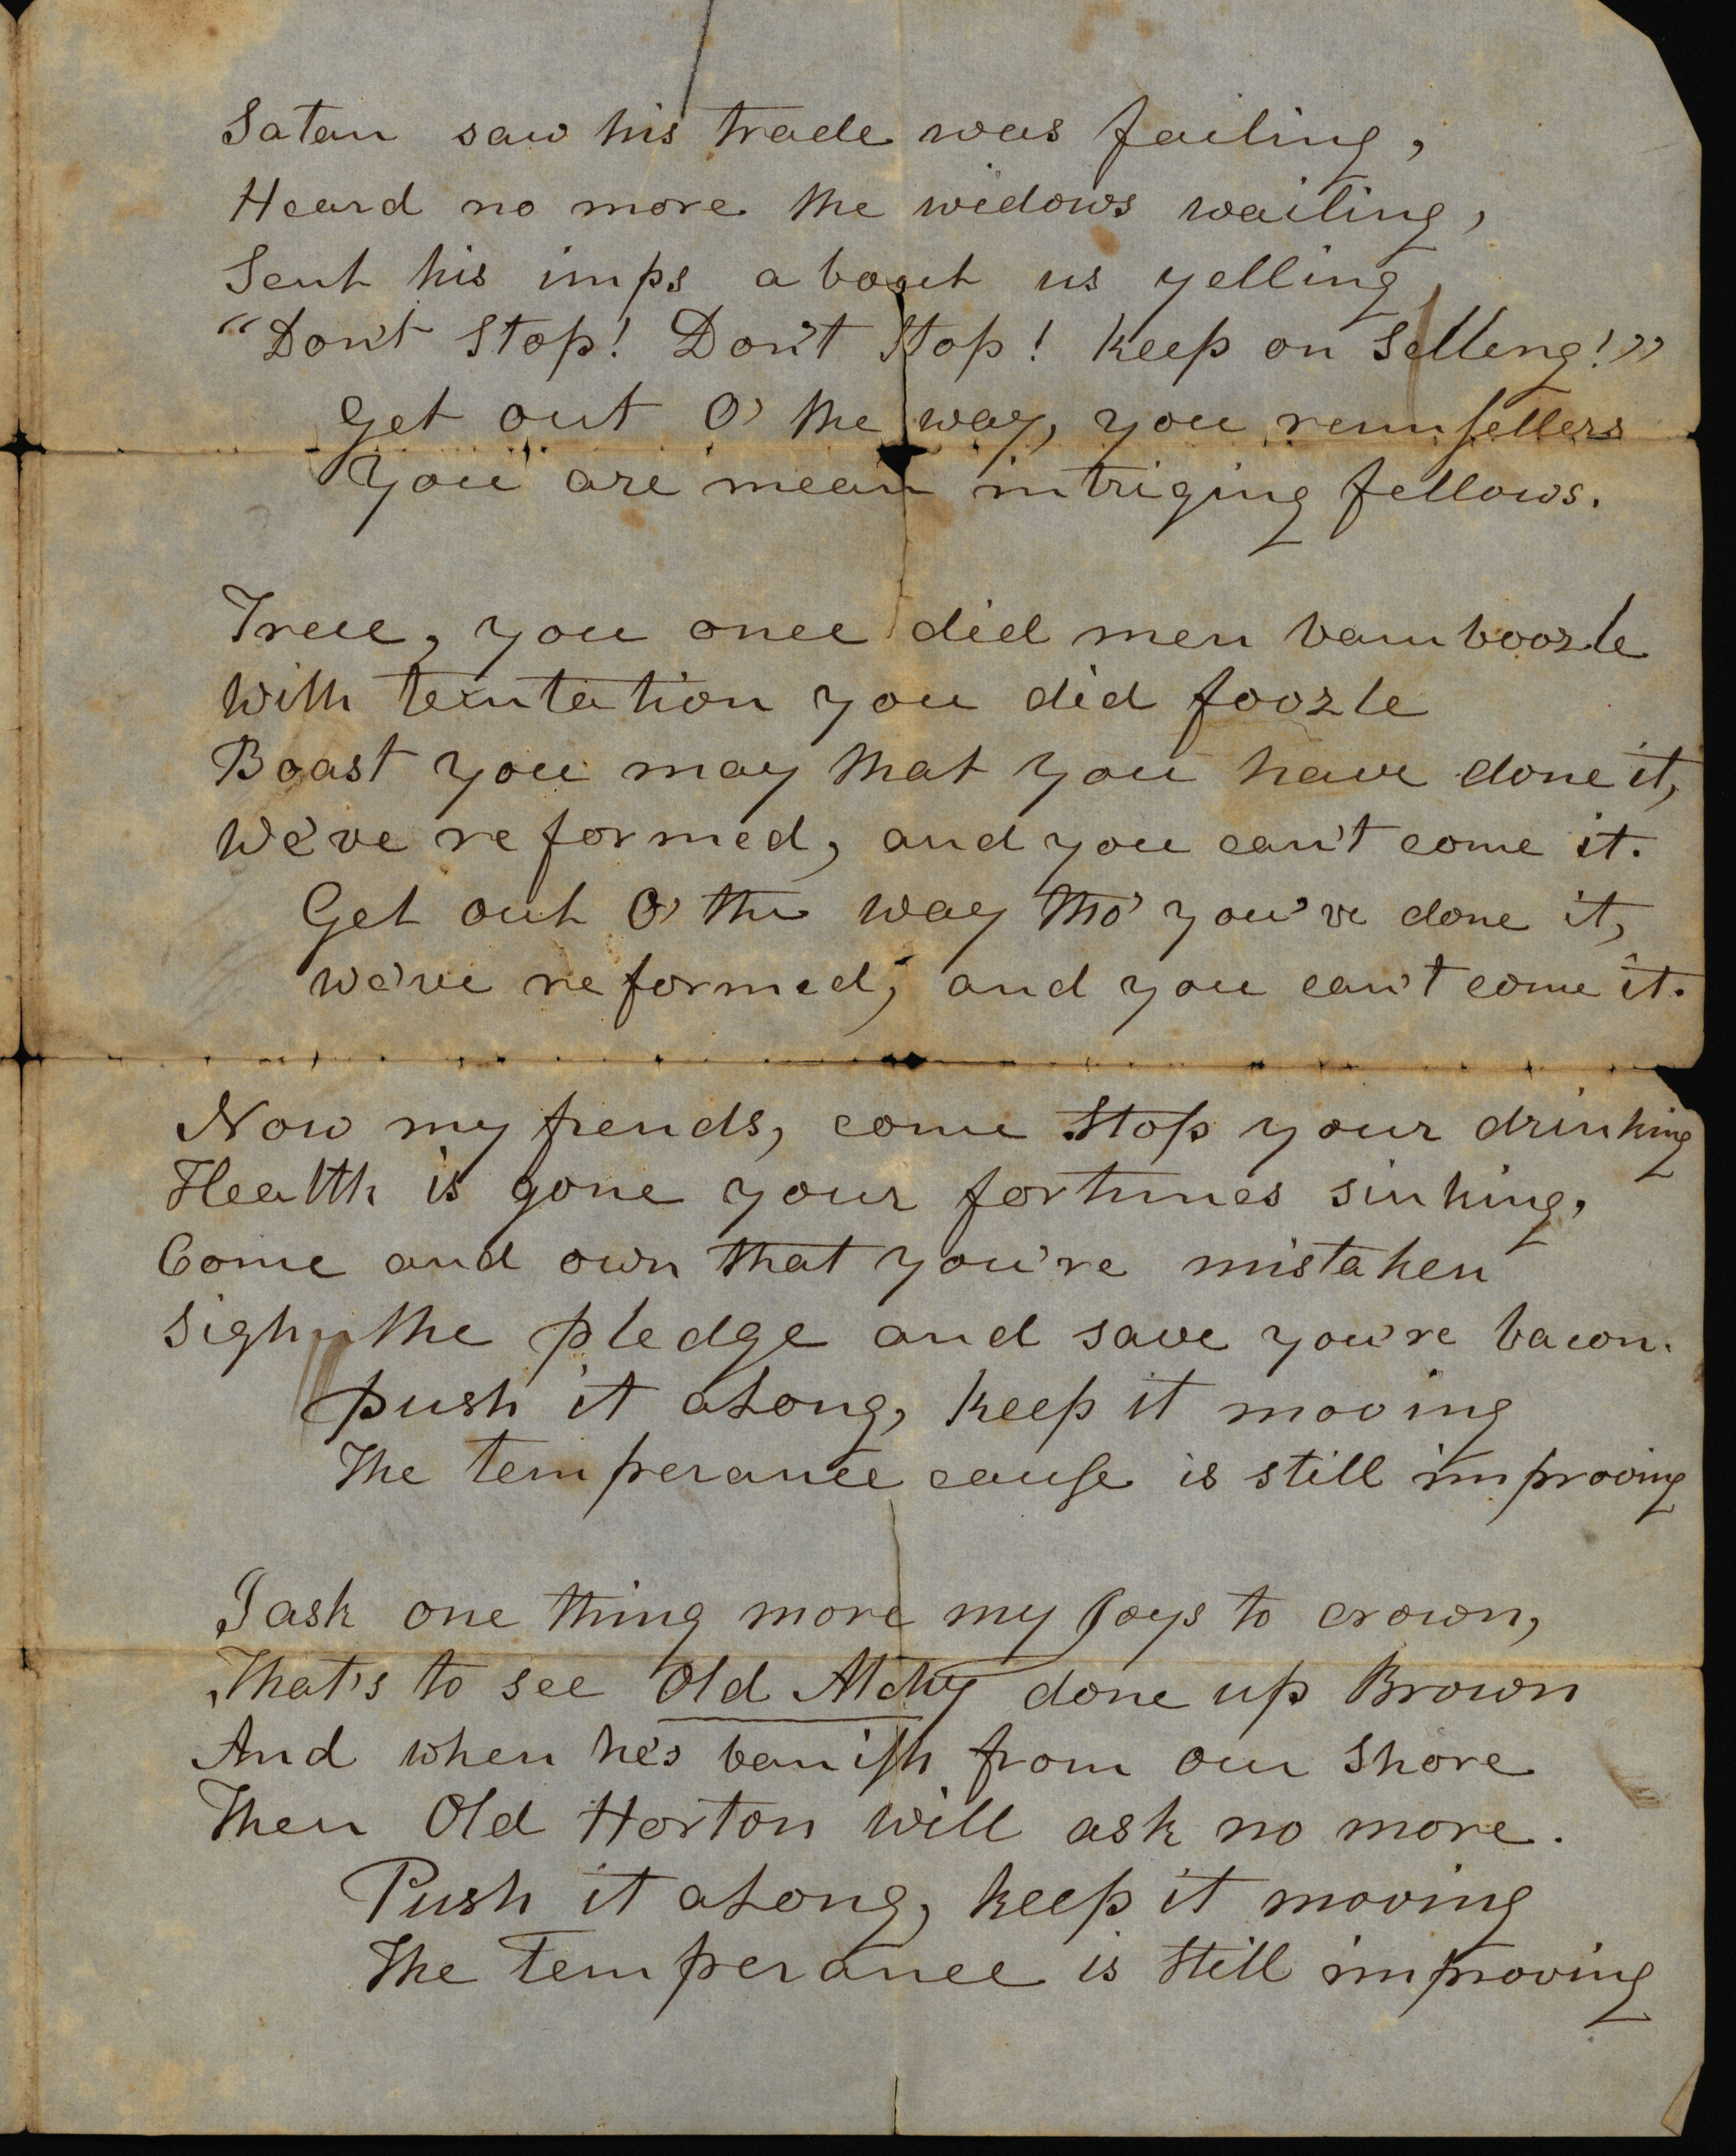 Satan saw his trade was failing,
Heard no more the widows wailing,
Sent his imps about us yelling,
"Don't Stop! Don't Stop! keep on Selleng!"
Get out O' the way, you rumsellers
You are mean intriging fellows.
True, you once did men bamboozle
With temtation you did foozle
Boast you may that you have done it,
We've reformed, and you can't come it.
Get out O' the way tho' you've done it,
We've reformed, and you can't come it.
Now my friends, come Stop your drinking
Health is gone your fortunes sinking,
Come and own that you're mistaken
Sighn the pledge and save you're bacon.
Push it along, keep it mooving
The temperance cause is still improoving
I ask one thing more my Joys to crown,
That's to see Old Alchy done up Brown
And when he's banish from our Shore
Then Old Horton will ask no more.
Push it along, keep it mooving
The Temperance is Still improoving